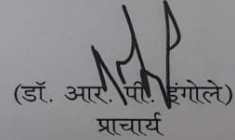 (डॉ. आर. पी. इंगोले)
प्राचार्य